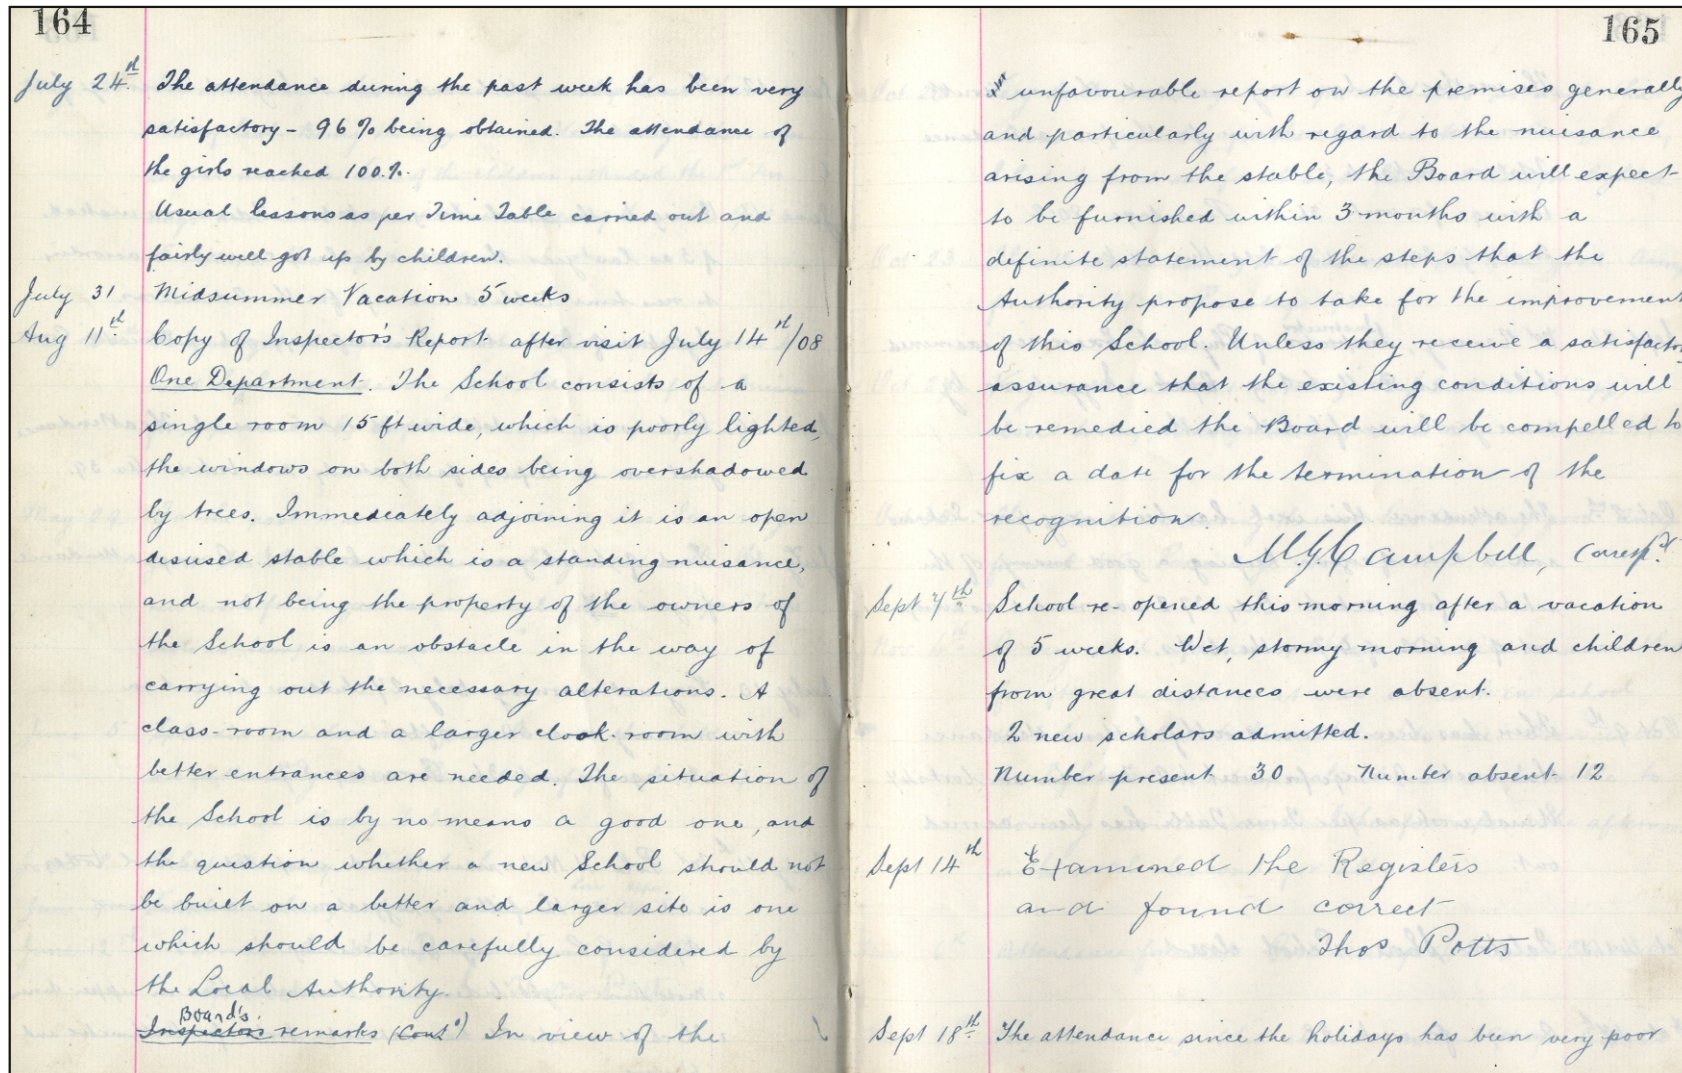 164
July 24th The attendance during the past week has been very
satisfactory - 96 % being obtained. The attendance of
the girls reached 100.%.
Usual lessons as per Time Table carried out and
fairly well got up by children.
July 31 Midsummer Vacation 5 weeks
Aug 11th Copy of Inspector's Report after visit July 14th/08
One Department. The School consists of a
single room 15 ft wide, which is poorly lighted,
the windows on both sides being overshadowed
by trees. Immediately adjoining it is an open
disused stable which is a standing nuisance,
and not being the property of the owners of
the School is an obstacle in the way of
carrying out the necessary alterations. A
class-room and a larger cloak-room with
better entrances are needed. The situation of
the School is by no means a good one, and
the question whether a new School should not
be built on a better and larger site is one
which should be carefully considered by
the Local Authority.
Board's
Inspectors remarks (Contd) In view of the
165
unfavourable report on the premises generally
and particularly with regard to the nuisance
arising from the stable, the Board will expect
to be furnished within 3 months with a
definite statement of the steps that the
Authority propose to take for the improvement
of this School. Unless they receive a satisfacto
assurance that the existing conditions will
be remedied the Board will be compelled to
fix a date for the termination of the
recognition.
Campbell, Corresp.dt
Sept 7th School re-opened this morning after a vacation
of 5 weeks. Wet, stormy morning and children
from great distances were absent.
2 new scholars admitted.
Number present 30 Number absent 12
Sept 14th Examined the Registers
and found correct
Thos Potts
Sept 18th The attendance since the holidays has been very poor